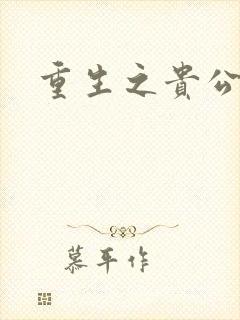 重生之貴公
慕平作